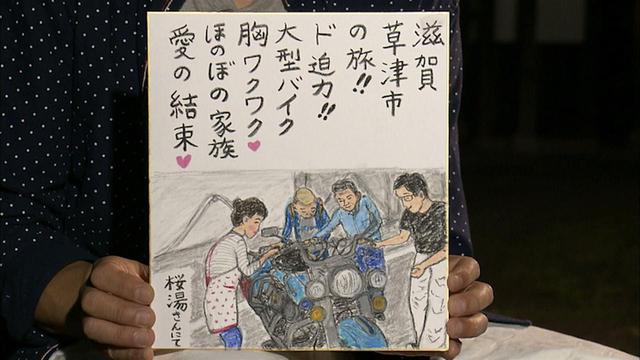 滋賀
草津市
の旅!!
ド迫力!!
大型バイク
胸ワクワク♥
ほのぼの家族
愛の結束♥
桜湯さんにて